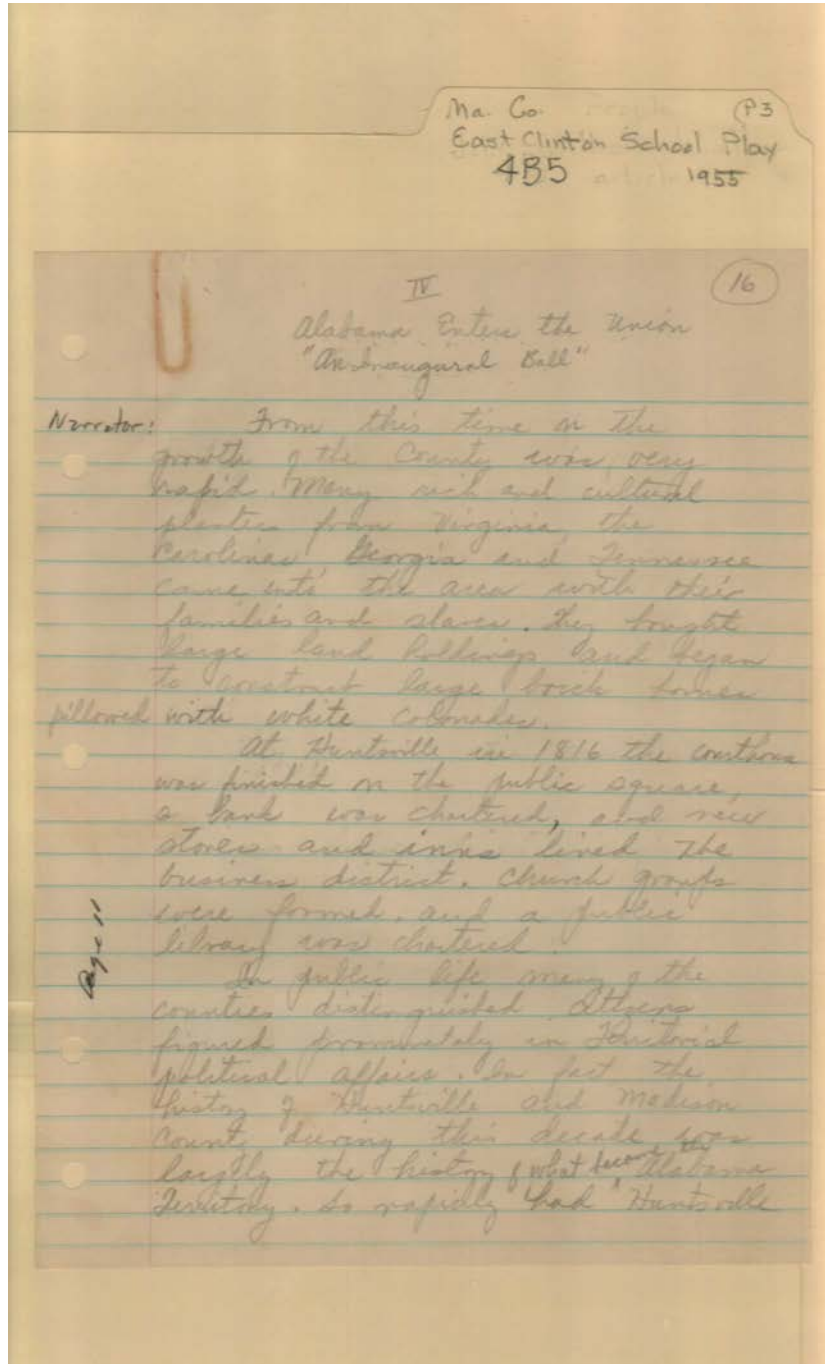 Ma. Co. P3
East Clinton School Play
4B5 1955
IV 16
Alabama Enters the Union
"An Inaugural Ball"
Narrator: From this time on the
growth of the County was very
rapid. Many rich and cultural
planters from Virginia, the
Carolinas, Georgia and Tennessee
came into the area with their
families and slaves. They bought
large land holdings and began
to construct large brick homes
pillowed with white colonades.
At Huntsville in 1816 the courthouse
was finished on the public square,
a bank was chartered, and new
stores and inns lined the
business district. Church groups
were formed. and a public
library was chartered.
Page 11
In public life many of the
counties distinguished citizens
figured prominately in Territorial
political affairs. In fact the
history of Huntsville and Madison
County during this decade was
largely the history of what became the Alabama
Territory. So rapidly had Huntsville